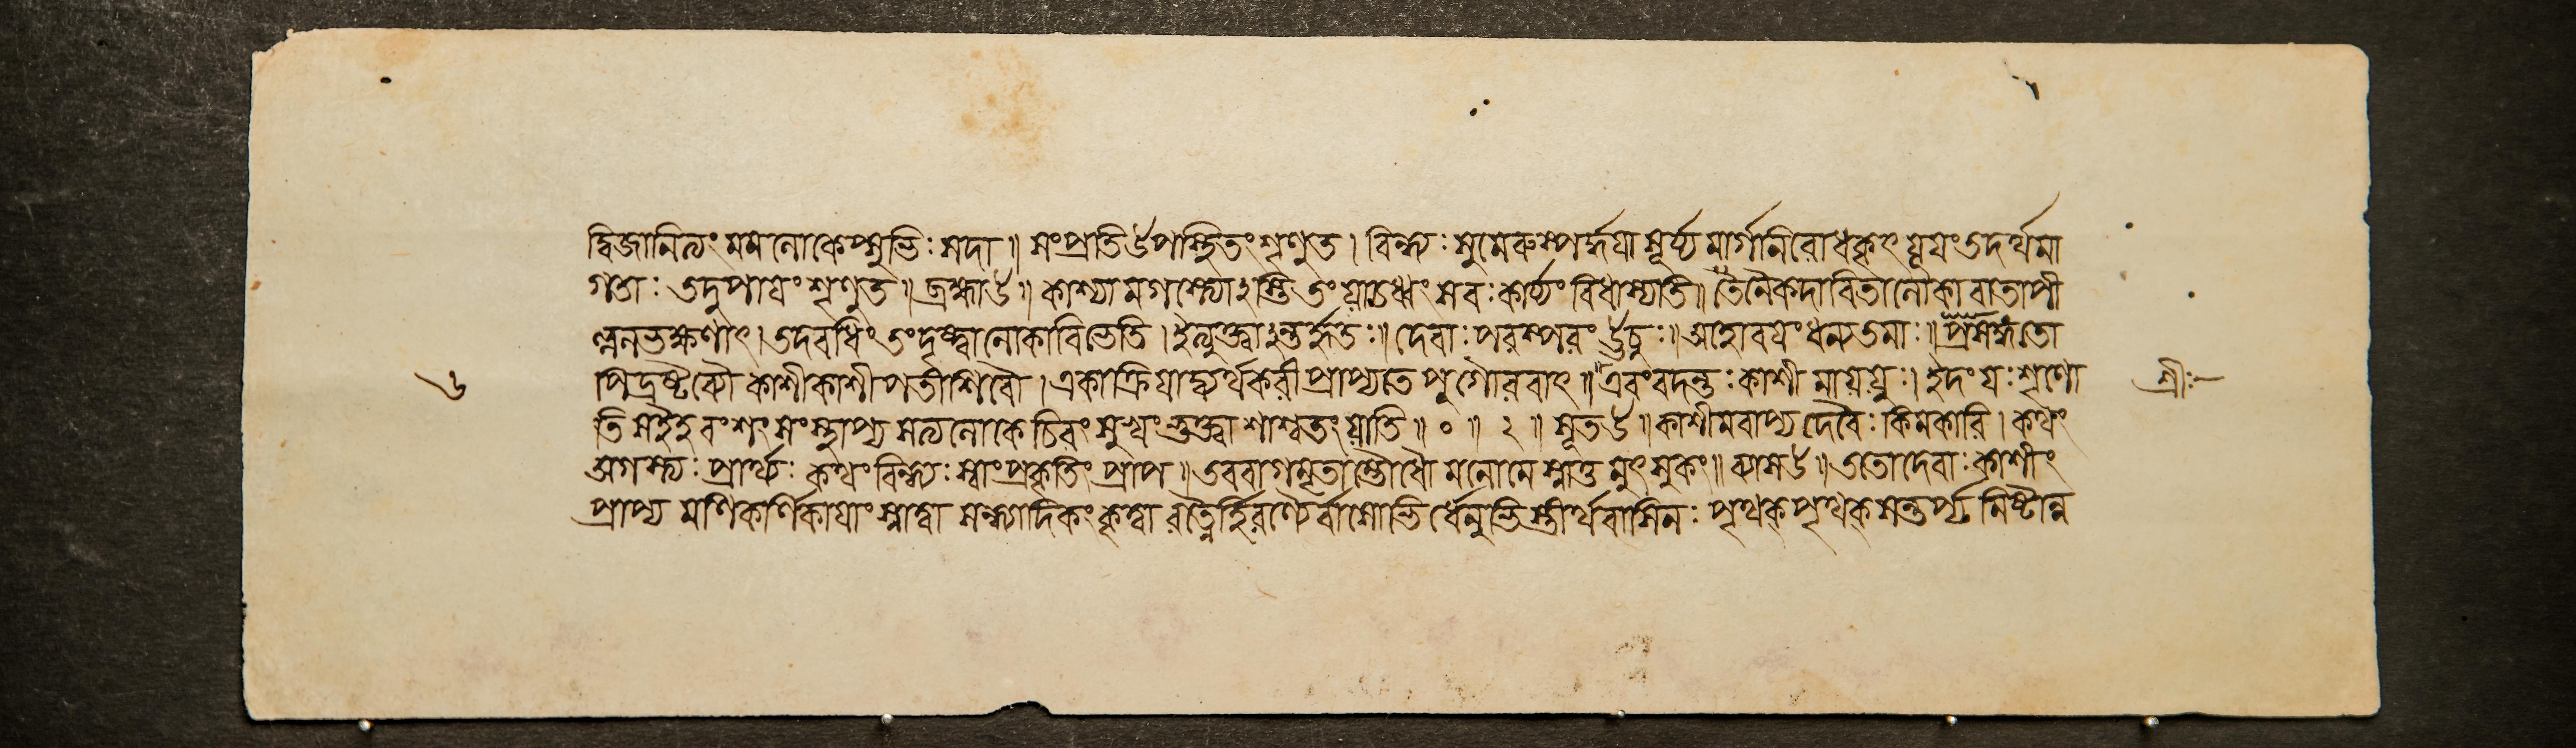 দ্বিজানিত্যং মমলোকেপ্সুভিঃ সদা ॥ সংপ্রতি ঔপস্থিতং শৃণুত । বিন্ধ্যঃ সুমেরুস্পর্দ্ধয়া সূর্য্যমার্গনিরোধকৃৎ যূয়ং তদর্থমা
গতাঃ তদুপায়ং শৃণুত ॥ ব্রহ্মা উ ॥ কাশ্যামগস্ত্যোঽস্তি তং যাচধ্বং সবঃ কার্য্যং বিধাস্যতি ॥ তেনৈকদাবিতালোকা বাতাপী
ল্বলভক্ষণাৎ । তদবধিং তং দৃষ্ট্বালোকাবিভেতি । ইত্যুক্ত্বাঽন্তর্হিতঃ ॥ দেবাঃ পরস্পরং ঊচুঃ ॥ অহোবয়ং ধন্যতমাঃ ॥ প্রসঙ্গতো
পিদ্রষ্টব্যৌ কাশীকাশীপতীশিবৌ । একাক্রিয়াদ্ব্যর্থকরী প্রাপ্যতে পুগৌরবাৎ ॥ এবংবদন্তঃ কাশীমায়যুঃ । ইদং যঃ শৃণো
তি সইহবংশং সংস্থাপ্য সত্যলোকে চিরং সুখং ভুক্ত্বা শাশ্বতং যাতি ॥ ० ॥ ২ ॥ সূত উ ॥ কাশীমবাপ্য দেবৈঃ কিমকারি । কথং
অগস্ত্যঃ প্রার্থ্যঃ কথং বিন্ধ্যঃ স্বাং প্রকৃতিং প্রাপ ॥ তববাগমৃতাম্ভোধৌ মনোমে স্নাতুমুৎসুকং ॥ ব্যাস উ ॥ ততোদেবাঃ কাশীং
প্রাপ্য মণিকর্ণিকায়াং স্নাত্বা সন্ধ্যাদিকং কৃত্বা রত্নৈর্হিরণ্যৈর্বাসোভির্ধেনুভিস্তীর্থবাসিনঃ পৃথক্ পৃথক্ সন্তর্প্য মিষ্টান্ন
৬
শ্রীঃ